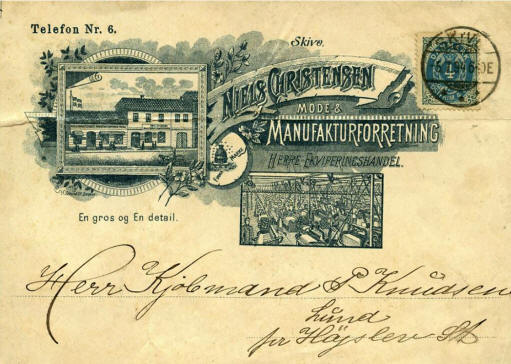 Telefon Nr. 6.
Skive.
NIELS CHRISTENSEN
MODE &
MANUFAKTURFORRETNING
HERRE-EKVIPERINGSHANDEL.
En gros og En detail.
Herr Kjöbmand P Knudsen
Lund
pr Höjslev St